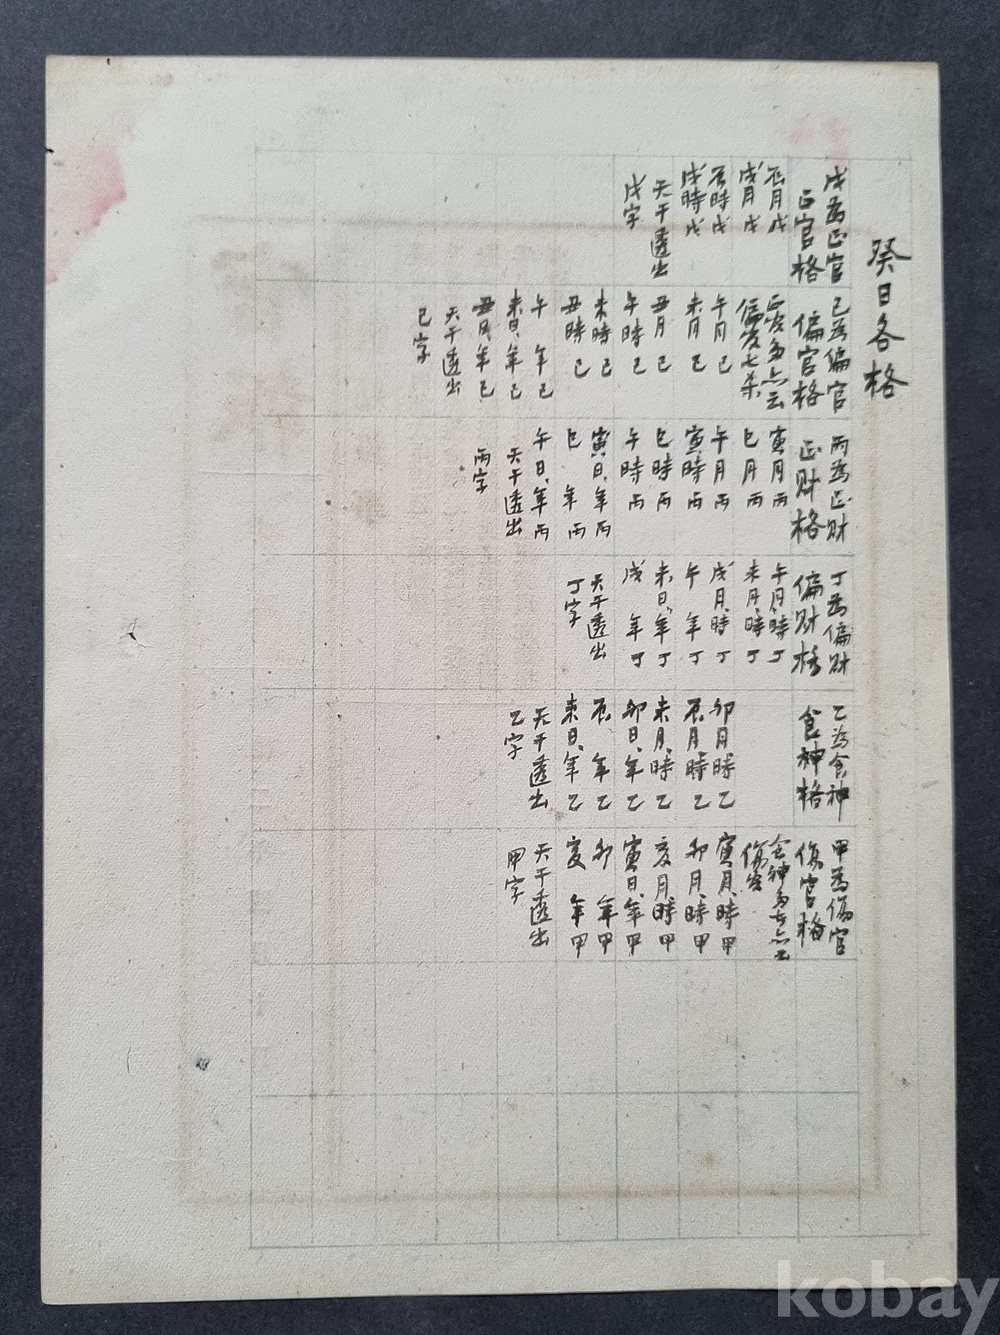 癸日各格
戊為正官
正官格
辰月戊
戌月戊
辰時戊
戌時戊
天干透出
戊字
己為偏官
偏官格
正官多亦云
偏官七杀
午月己
未月己
丑月己
午時己
未時己
丑時己
午 年己
未日、年己
丑日、年己
天干透出
己字
丙為正財
正財格
寅月丙
巳月丙
午月丙
寅時丙
巳時丙
午時丙
寅日、年丙
巳 年丙
午日、年丙
天干透出
丙字
丁為偏財
偏財格
午月、時丁
未月、時丁
戌月、時丁
午 年丁
未日、年丁
戌 年丁
天干透出
丁字
乙為食神
食神格
卯月時乙
辰月、時乙
未月、時乙
卯日、年乙
辰 年乙
未日、年乙
天干透出
乙字
甲為傷官
傷官格
食神多者亦云
傷官
寅月、時甲
卯月、時甲
亥月、時甲
寅日、年甲
卯 年甲
亥 年甲
天干透出
甲字
kobay